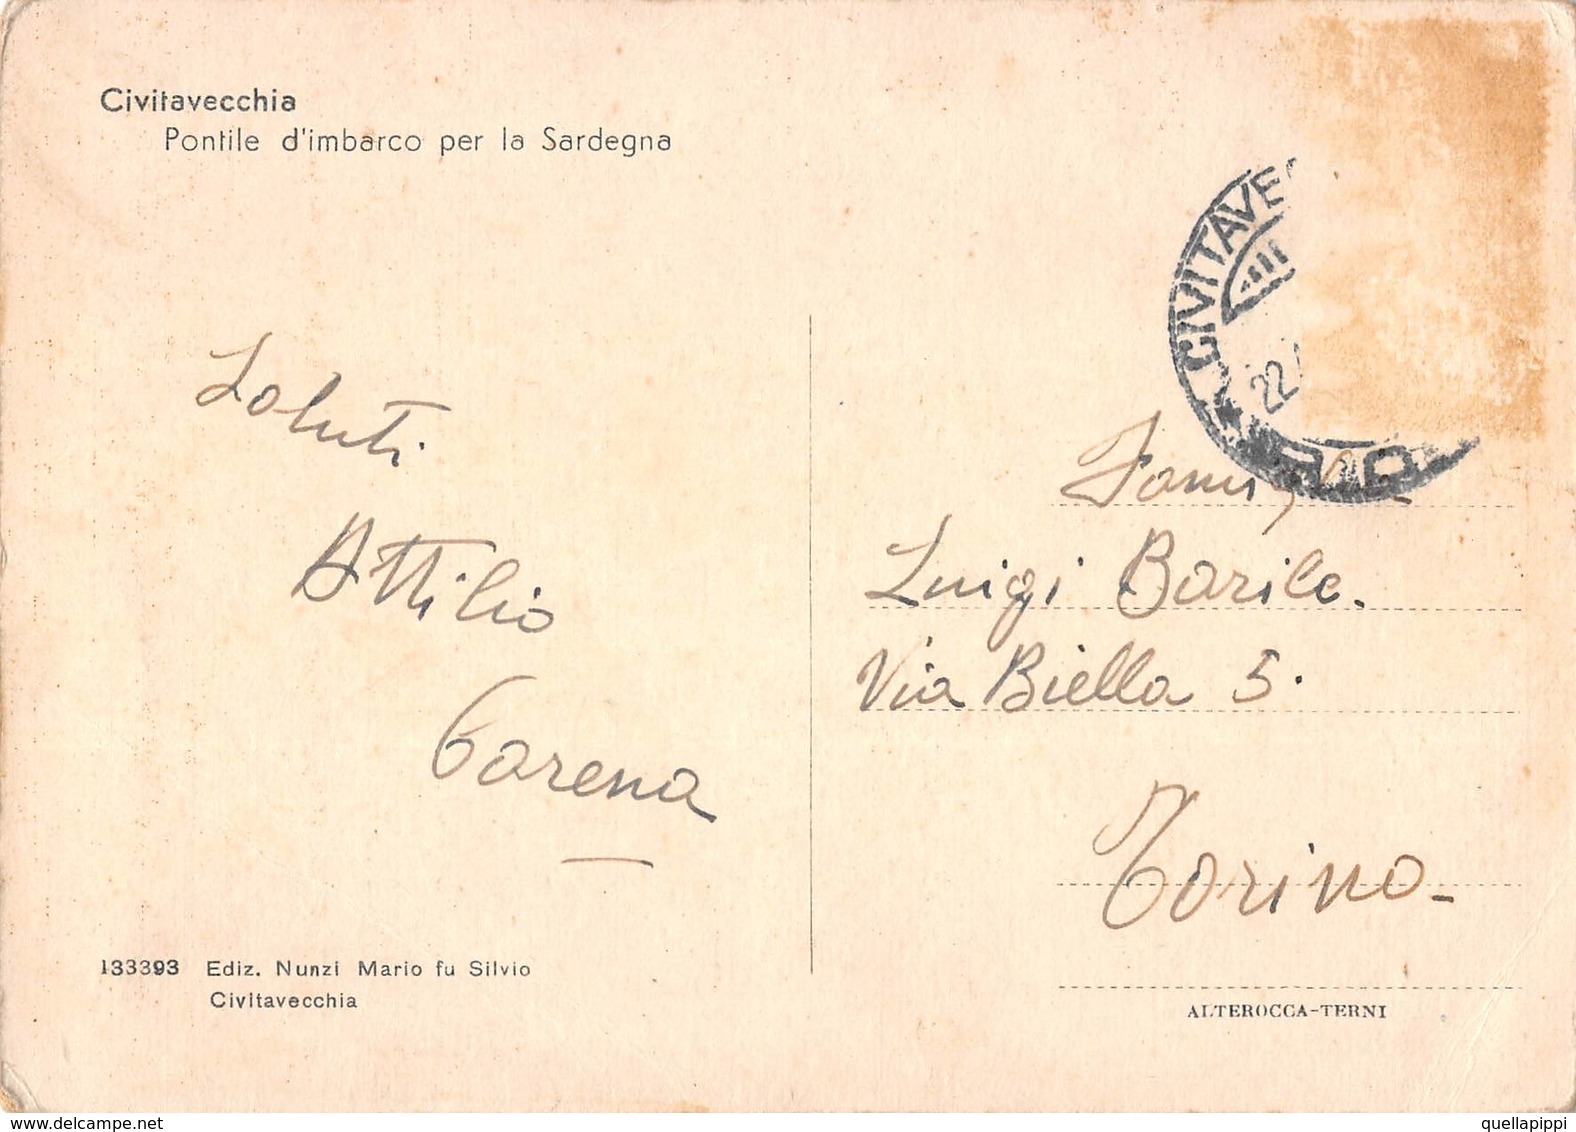 Civitavecchia
Pontile d'imbarco per la Sardegna
CIVITAVE
22
Saluti
Attilio
Carena
Famiglia
Luigi Barile.
Via Biella 5.
Torino-
133393 Ediz. Nunzi Mario fu Silvio
Civitavecchia
ALTEROCCA-TERNI
quellapippi